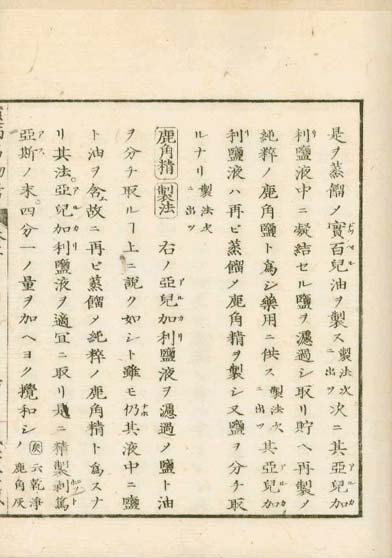 是ヲ蒸餾メ寶百兒油ヲ製ス製法次ニ出ツ次ニ其亞兒加
利鹽液中ニ凝結セル鹽ヲ濾過シ取リ貯ヘ再製メ
純粹ノ鹿角鹽ト爲シ藥用ニ供ス製法次ニ出ツ其亞兒加
利鹽液ハ再ヒ蒸餾メ鹿角精ヲ製シ又鹽ヲ分チ取
ルナリ製法次ニ出ツ
鹿角精製法 右ノ亞兒加利鹽液ヲ濾過メ鹽ト油
ヲ分チ取ルヿ上ニ説ク如シト雖モ仍其液中ニ鹽
ト油ヲ含ム故ニ再ヒ蒸餾メ純粹ノ鹿角精ト爲スナ
リ其法亞兒加利鹽液ヲ適宜ニ取リ是ニ精製剥篤
亞斯ノ末四分一ノ量ヲ加ヘヨク攪和シノ灰云乾淨鹿角灰